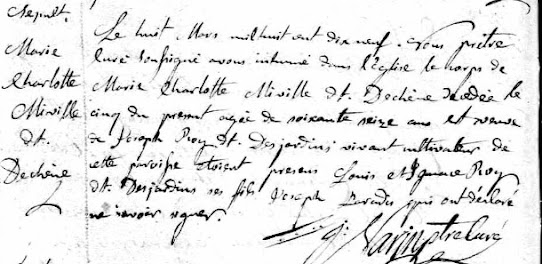 Sepult.
Marie
Charlotte
Miville
dt.
Dechêne
Le huit Mars mil huit cent dix neuf. Nous prêtre
Curé soussigné avons inhumé dans l'église le corps de
Marie Charlotte Miville dt. Dechêne decedée le
cinq du present agée de soixante seize ans et veuve
de Joseph Roy dt. Desjardins vivant cultivateur de
cette paroisse etoient presens Louis et Ignace Roy
dt. Desjardins ses fils Joseph Paradis qui ont déclaré
ne savoir signer.
J. Varin ptre Curé